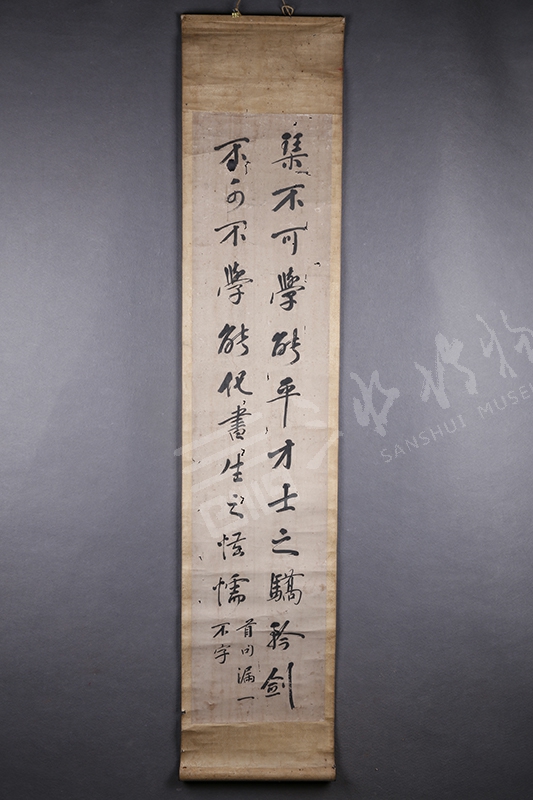 琹不可學能平才士之驕矜劍
不可不學能化書生之怯懦
首句漏一
不字
三水博物
SANSHUI MUSE